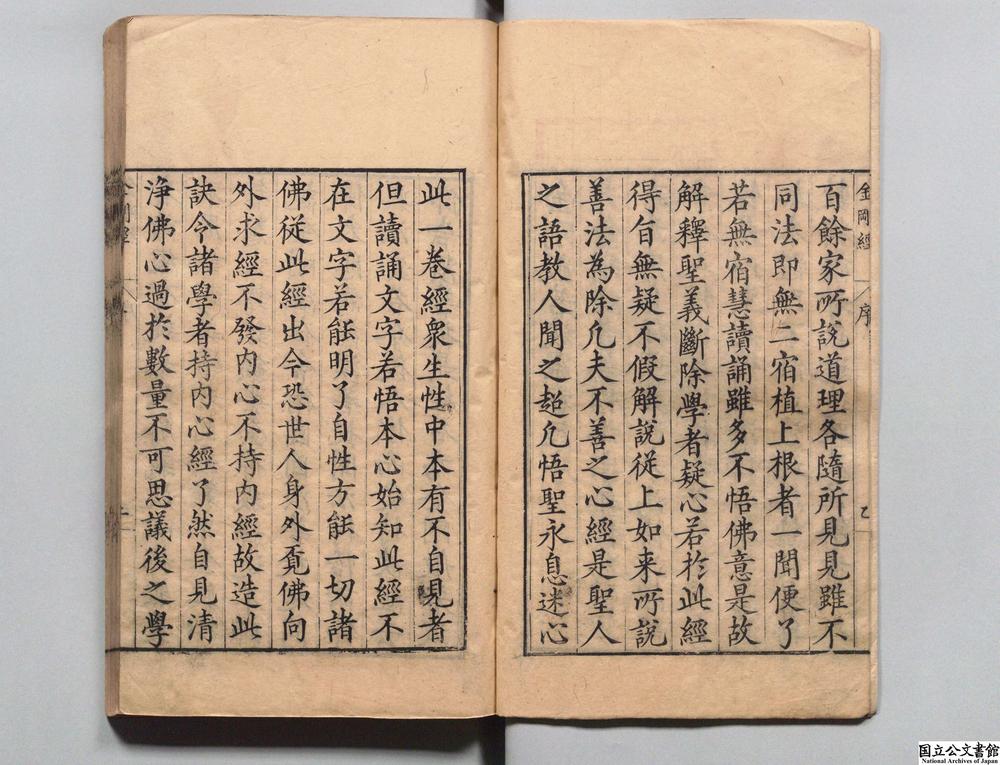 金岡經
序
百餘家所說道理各隨所見見雖不
同法即無二宿植上根者一聞便了
若無宿慧讀誦雖多不悟佛意是故
解釋聖義斷除學者疑心若於此經
得旨無疑不假解說從上如来所說
善法為除凡夫不善之心經是聖人
之語教人聞之超凡悟聖永息迷心
此一卷經衆生性中本有不自見者
但讀誦文字若悟本心始知此經不
在文字若能明了自性方能一切諸
佛從此經出今恐世人身外覓佛向
外求經不發内心不持内經故造此
訣今諸學者持内心經了然自見清
淨佛心過於數量不可思議後之學
国立公文書館
National Archives of Japan